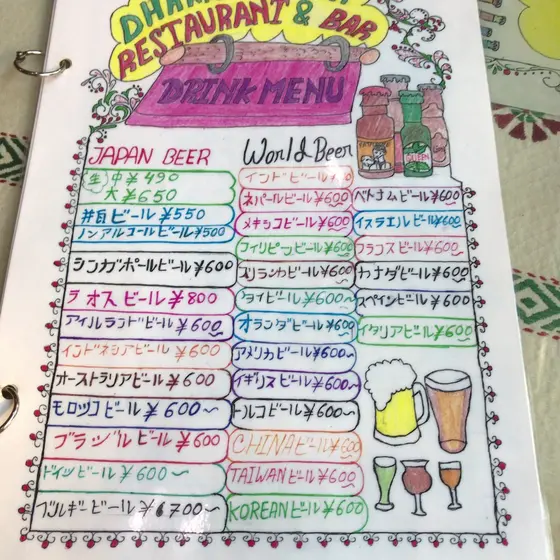 RESTAURANT & BAR
DRINK MENU
JAPAN BEER
生 中 ¥490
大 ¥650
ビール ¥550
ノンアルコールビール ¥500
シンガポールビール ¥600
ラオスビール ¥800
アイルランドビール ¥600〜
インドネシアビール ¥600
オーストラリアビール ¥600
モロッコビール ¥600〜
ブラジルビール ¥600
ドイツビール ¥600〜
ベルギービール ¥700〜
World Beer
インドビール
ネパールビール ¥600
メキシコビール ¥600
フィリピンビール ¥600
スリランカビール ¥600
タイビール ¥600〜
オランダビール ¥600
アメリカビール ¥600〜
イギリスビール ¥600〜
トルコビール ¥600
CHINAビール ¥600
TAIWANビール ¥600
KOREANビール ¥600
ベトナムビール ¥600
イスラエルビール ¥600
フランスビール ¥600
カナダビール ¥600
スペインビール ¥600
イタリアビール ¥600